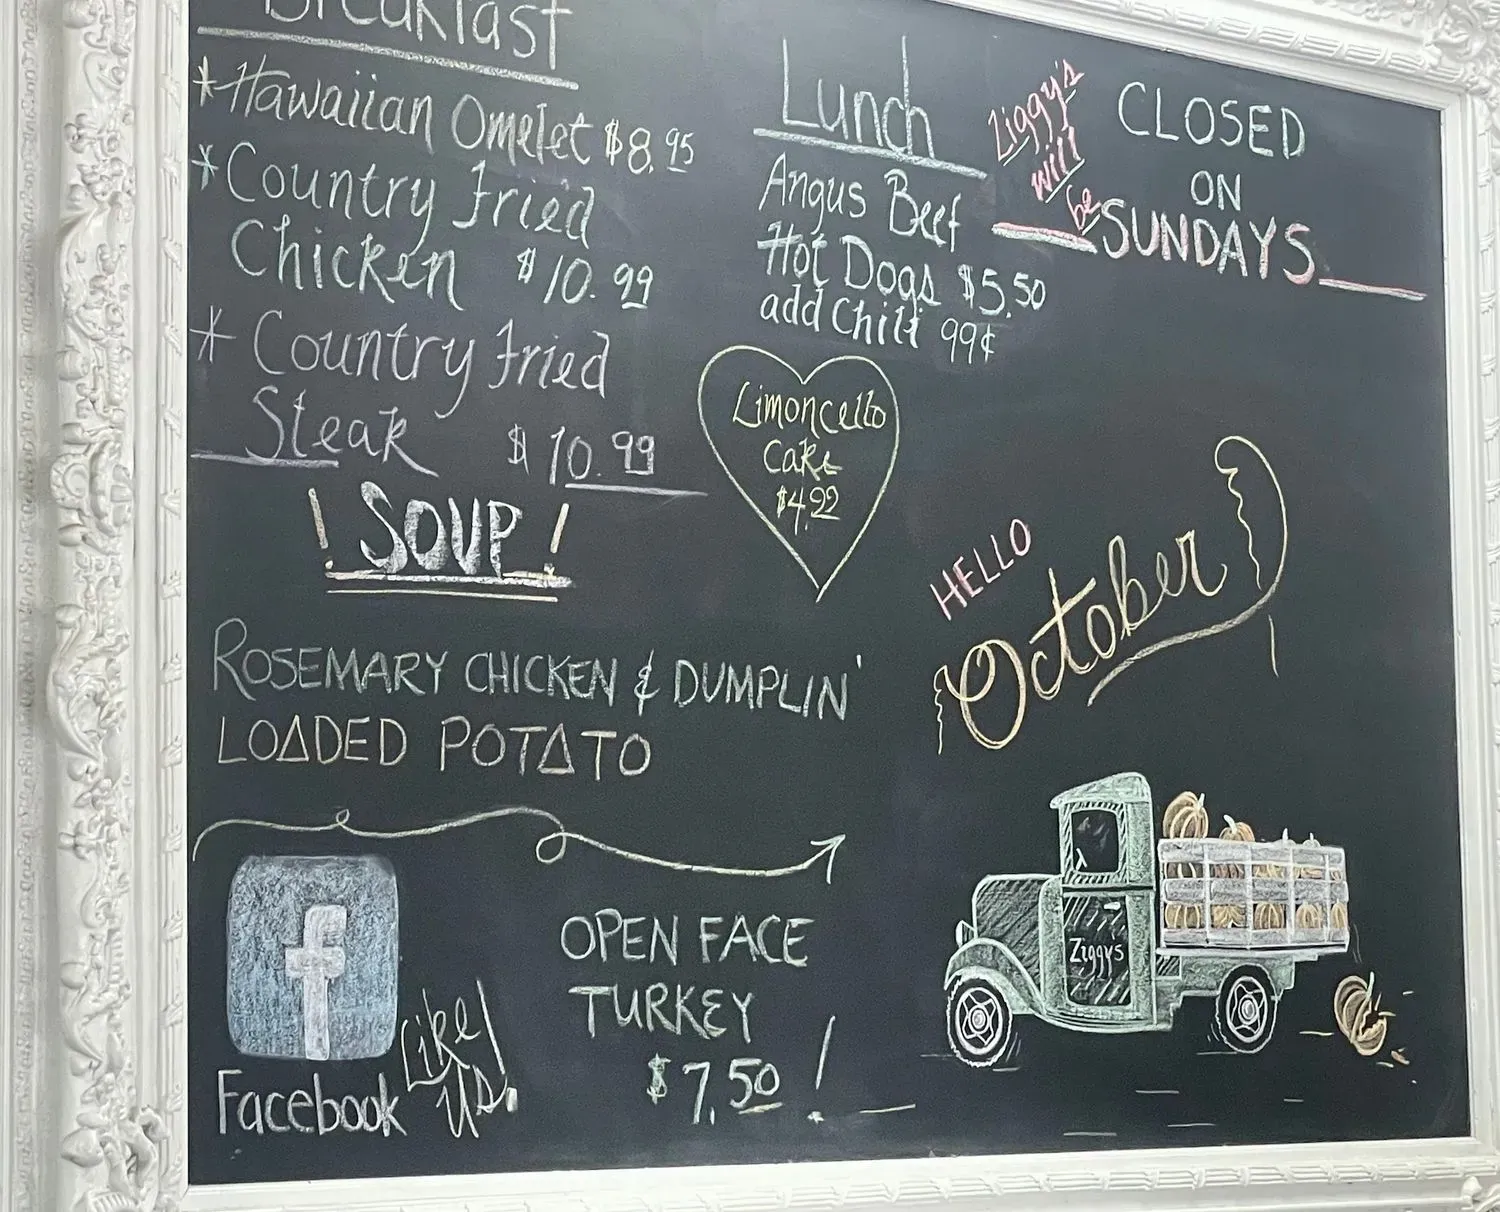 Breakfast
*Hawaiian Omelet $8.95
*Country Fried
Chicken $10.99
*Country Fried
Steak $10.99
! SOUP !
ROSEMARY CHICKEN & DUMPLIN'
LOADED POTATO
f
Facebook
Like
us!
OPEN FACE
TURKEY
$7.50 !
Lunch
Angus Beef
Hot Dogs $5.50
add Chili 99¢
Limoncello
Cake
$4.99
Ziggy's
will
be
CLOSED
ON
SUNDAYS
HELLO
October
Ziggys